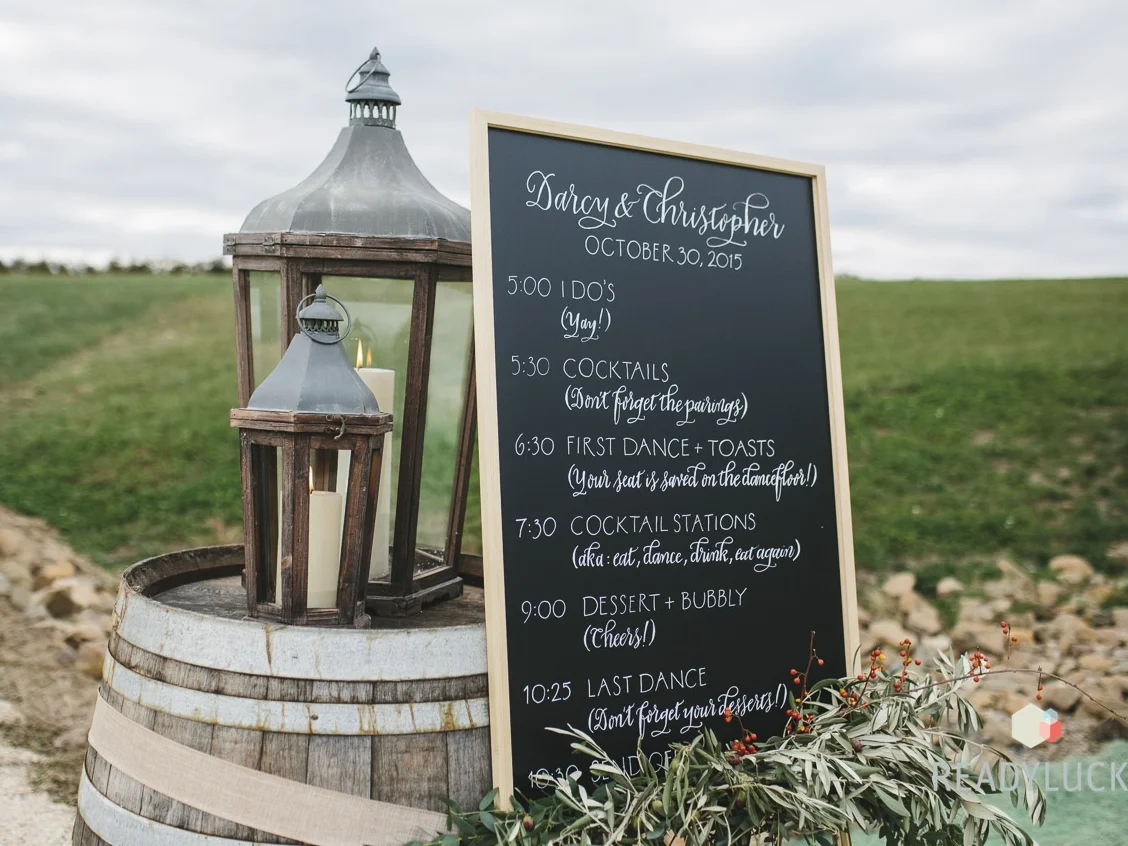 Darcy & Christopher
OCTOBER 30, 2015
5:00 I DO'S
(Yay!)
5:30 COCKTAILS
(Don't forget the pairings)
6:30 FIRST DANCE + TOASTS
(Your seat is saved on the dancefloor!)
7:30 COCKTAIL STATIONS
(aka: eat, dance, drink, eat again)
9:00 DESSERT + BUBBLY
(Cheers!)
10:25 LAST DANCE
(Don't forget your desserts!)
10:30 SEND OFF
READYLUCK